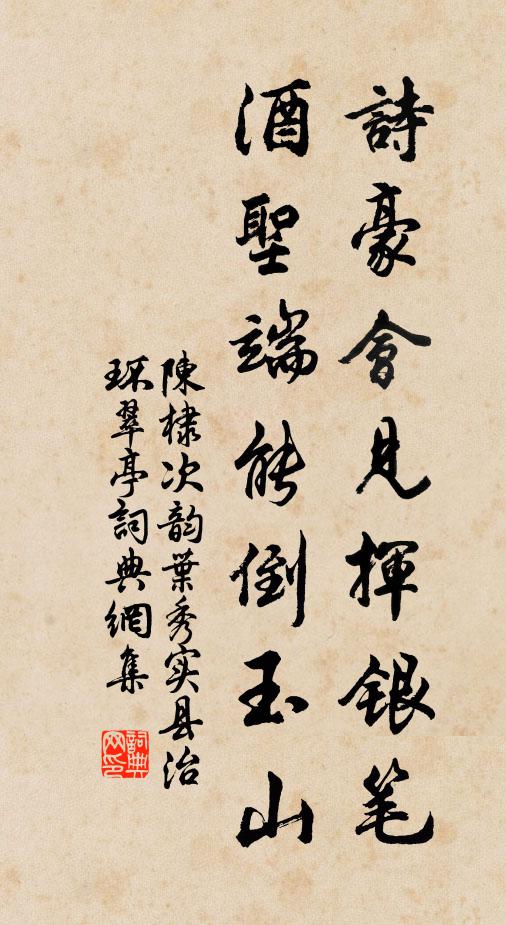 詩豪會見揮銀笔
酒聖端能倒玉山
陳棣次韵葉秀实县治
环翠亭詞典網集
詞典網印